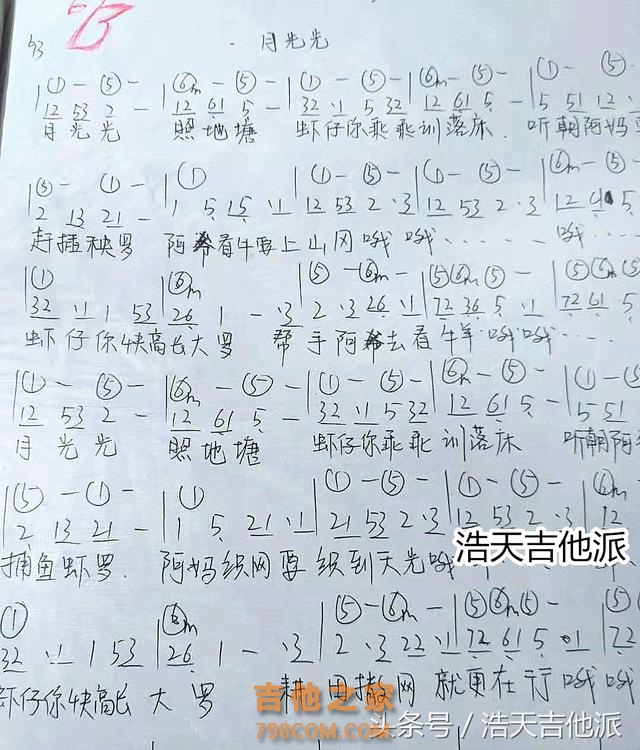 43 B 月光光
|① - ⑤ - |⑥m - ⑤ - |① - ⑤ - |⑥m - ⑤ - |① - ⑤
12 53 2 - 12 61 5 - 32 ·1 5 32 12 61 5 - 5 51 12
月光光 照地塘 虾仔你乖乖训落床 听朝阿妈
⑤ - ① - |① |① - ⑤ - |① - ⑤ - |⑥m - ⑤
2 13 21 - 1 5 15 ·1 12 53 2 ·3 12 53 2 ·3 12 5
赶插秧罗 阿 看牛要上山冈哦 哦 …… 哦 ……
|① |⑥m |⑤ - ⑥m - |⑤ ⑥m ⑤ - |⑤ ⑥m ⑤
32 ·1 1 53 26 1 - ·3 2 ·3 26 ·1 72 36 5 ·1 72 61 5
虾仔你快高长大罗 帮手阿 去看牛羊哦哦 ……
|① - ⑤ - |⑥m - ⑤ - |① - ⑤ - |⑥m - ⑤ - |① - ⑤
12 53 2 - 12 61 5 - 32 ·1 5 32 12 61 5 - 5 51
月光光 照地塘 虾仔你乖乖训落床 听朝阿
|⑤ - ① - |① |① - ⑤ - |① - ⑤ - |⑥m
2 13 21 - 1 5 21 ·1 21 53 2 ·3 12 53 2 ·3 12
捕鱼虾罗 阿妈织网要织到天光哦
浩天吉他派
① |⑥m |⑤ - ⑥m - |⑤ ⑥m ⑤ - |⑤
32 ·1 1 53 26 1 - ·3 2 ·3 22 ·1 72 61 5 ·1 72
虾仔你快高长大罗 耕田撒网就更在行哦哦
吉他之家
790COM.COM
头条号 / 浩天吉他派